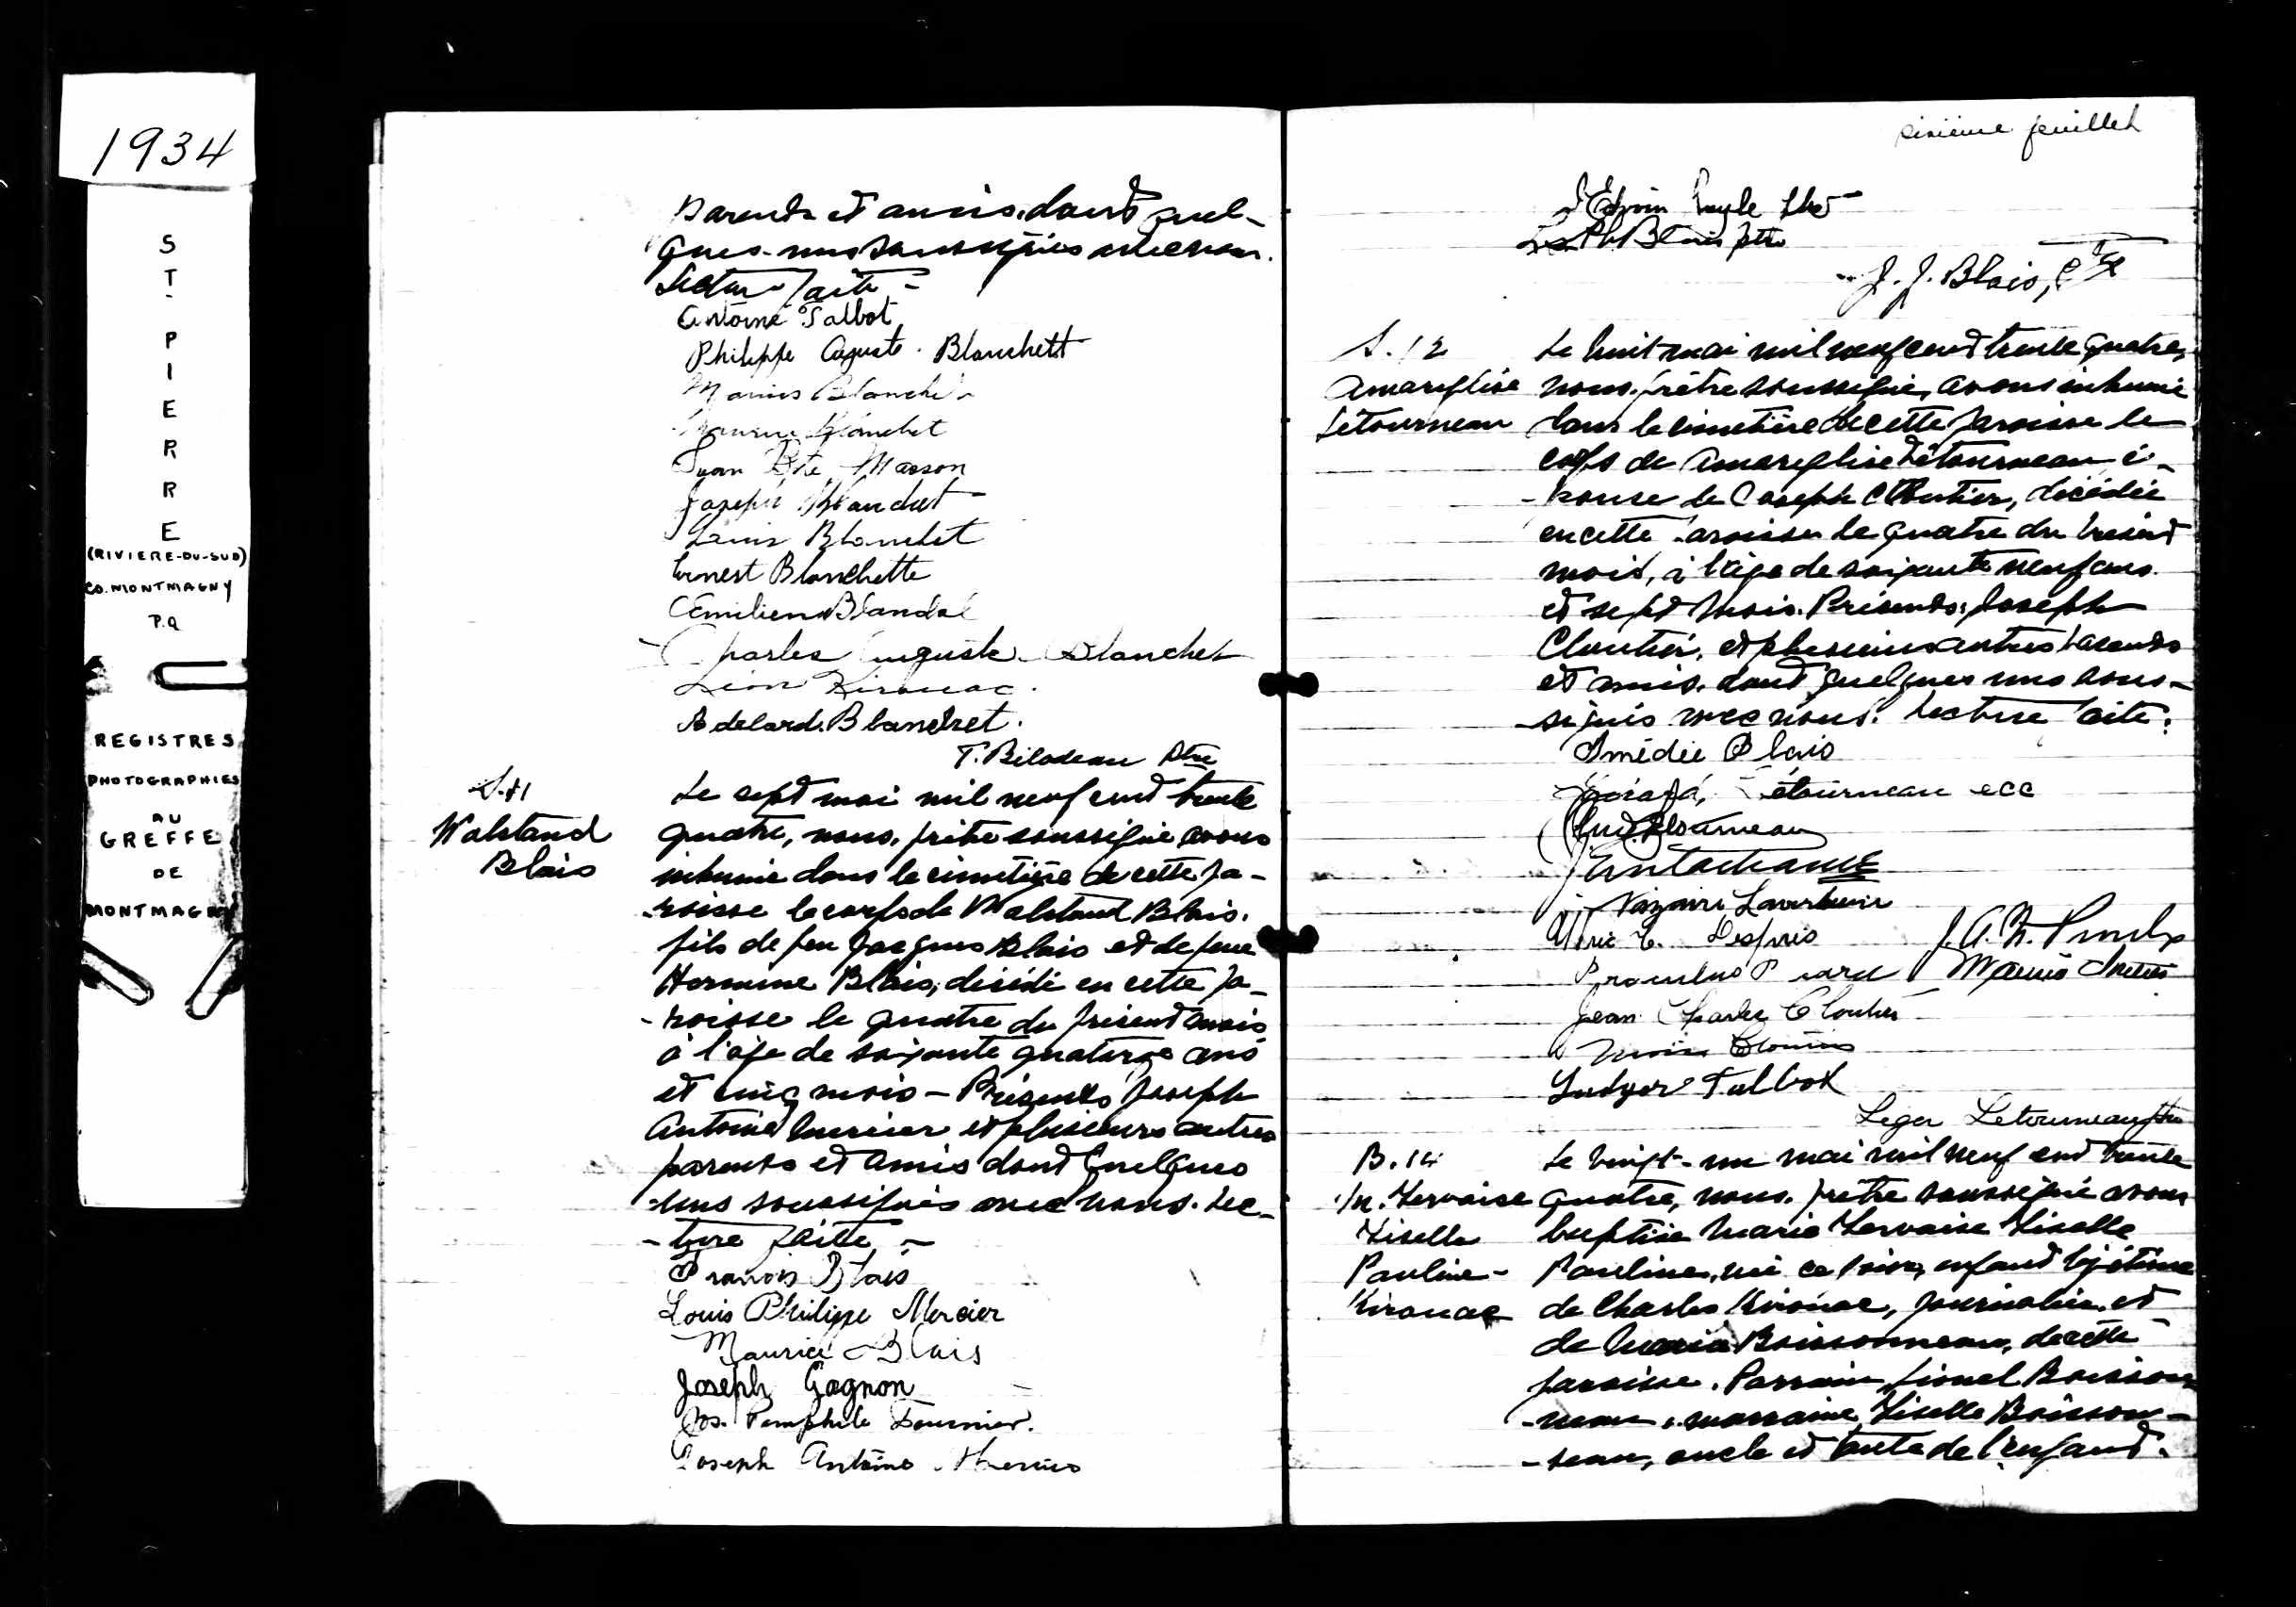 1934
ST-PIERRE
(RIVIERE-DU-SUD)
CO. MONTMAGNY
P.Q
REGISTRES
PHOTOGRAPHIES
AU
GREFFE
DE
MONTMAGNY
parents et amis, dont quel-
ques-uns soussignés avec nous.
Lecture faite -
Antoine Talbot
Philippe Auguste Blanchett
Marius Blanchet
Blanchet
Jean Bte Masson
Joseph Blanchet
Louis Blanchet
Ernest Blanchette
Emilien Blanchet
Charles Auguste Blanchet
Léon Kirouac.
Adelard Blanchet.
T. Bilodeau Ptre
S. 11
Walstand
Blais
Le sept mai mil neuf cent trente
quatre, nous, prêtre soussigné avons
inhumé dans le cimetière de cette pa-
-roisse le corps de Walstand Blais,
fils de feu Jacques Blais et de feue
Hermine Blais, décédé en cette pa-
-roisse le quatre du présent mois
à l'âge de soixante quatorze ans
et cinq mois - Présents Joseph
Antoine Mercier et plusieurs autres
parents et amis dont quelques
-uns soussignés avec nous. Lec-
-ture faite -
François Blais
Louis Philippe Mercier
Maurice Blais
Joseph Gagnon
Jos. Pamphile Fournier.
Joseph Antoine Mercier
sixième feuillet
Ph Blais ptre
J. J. Blais, Ptre
S. 12
Amareglise
Létourneau
Le huit mai mil neuf cent trente quatre,
nous, prêtre soussigné, avons inhumé
dans le cimetière de cette paroisse le
corps de Amareglise Létourneau, é-
-pouse de Joseph Cloutier, décédée
en cette paroisse le quatre du présent
mois, à l'âge de soixante neuf ans
et sept mois. Présents: Joseph
Cloutier, et plusieurs autres parents
et amis, dont quelques uns sous-
-signés avec nous. Lecture faite:
Amédée Blais
Létourneau ecc
Létourneau
Nazaire Laverdière
J. A. N. Proulx
Jean Charles Cloutier
Cloutier
Ludger Talbot
Leger Letourneau ptre
B. 14
M. Gervaise
Giselle
Pauline-
Kirouac
Le vingt-un mai mil neuf cent trente
quatre, nous, prêtre soussigné avons
baptisé Marie Gervaise Giselle
Pauline, née ce jour, enfant légitime
de Charles Kirouac, journalier, et
de Maria Boissonneau, de cette
paroisse. Parrain, Lionel Boisson-
-neau, marraine, Giselle Boisson-
-neau, oncle et tante de l'enfant.